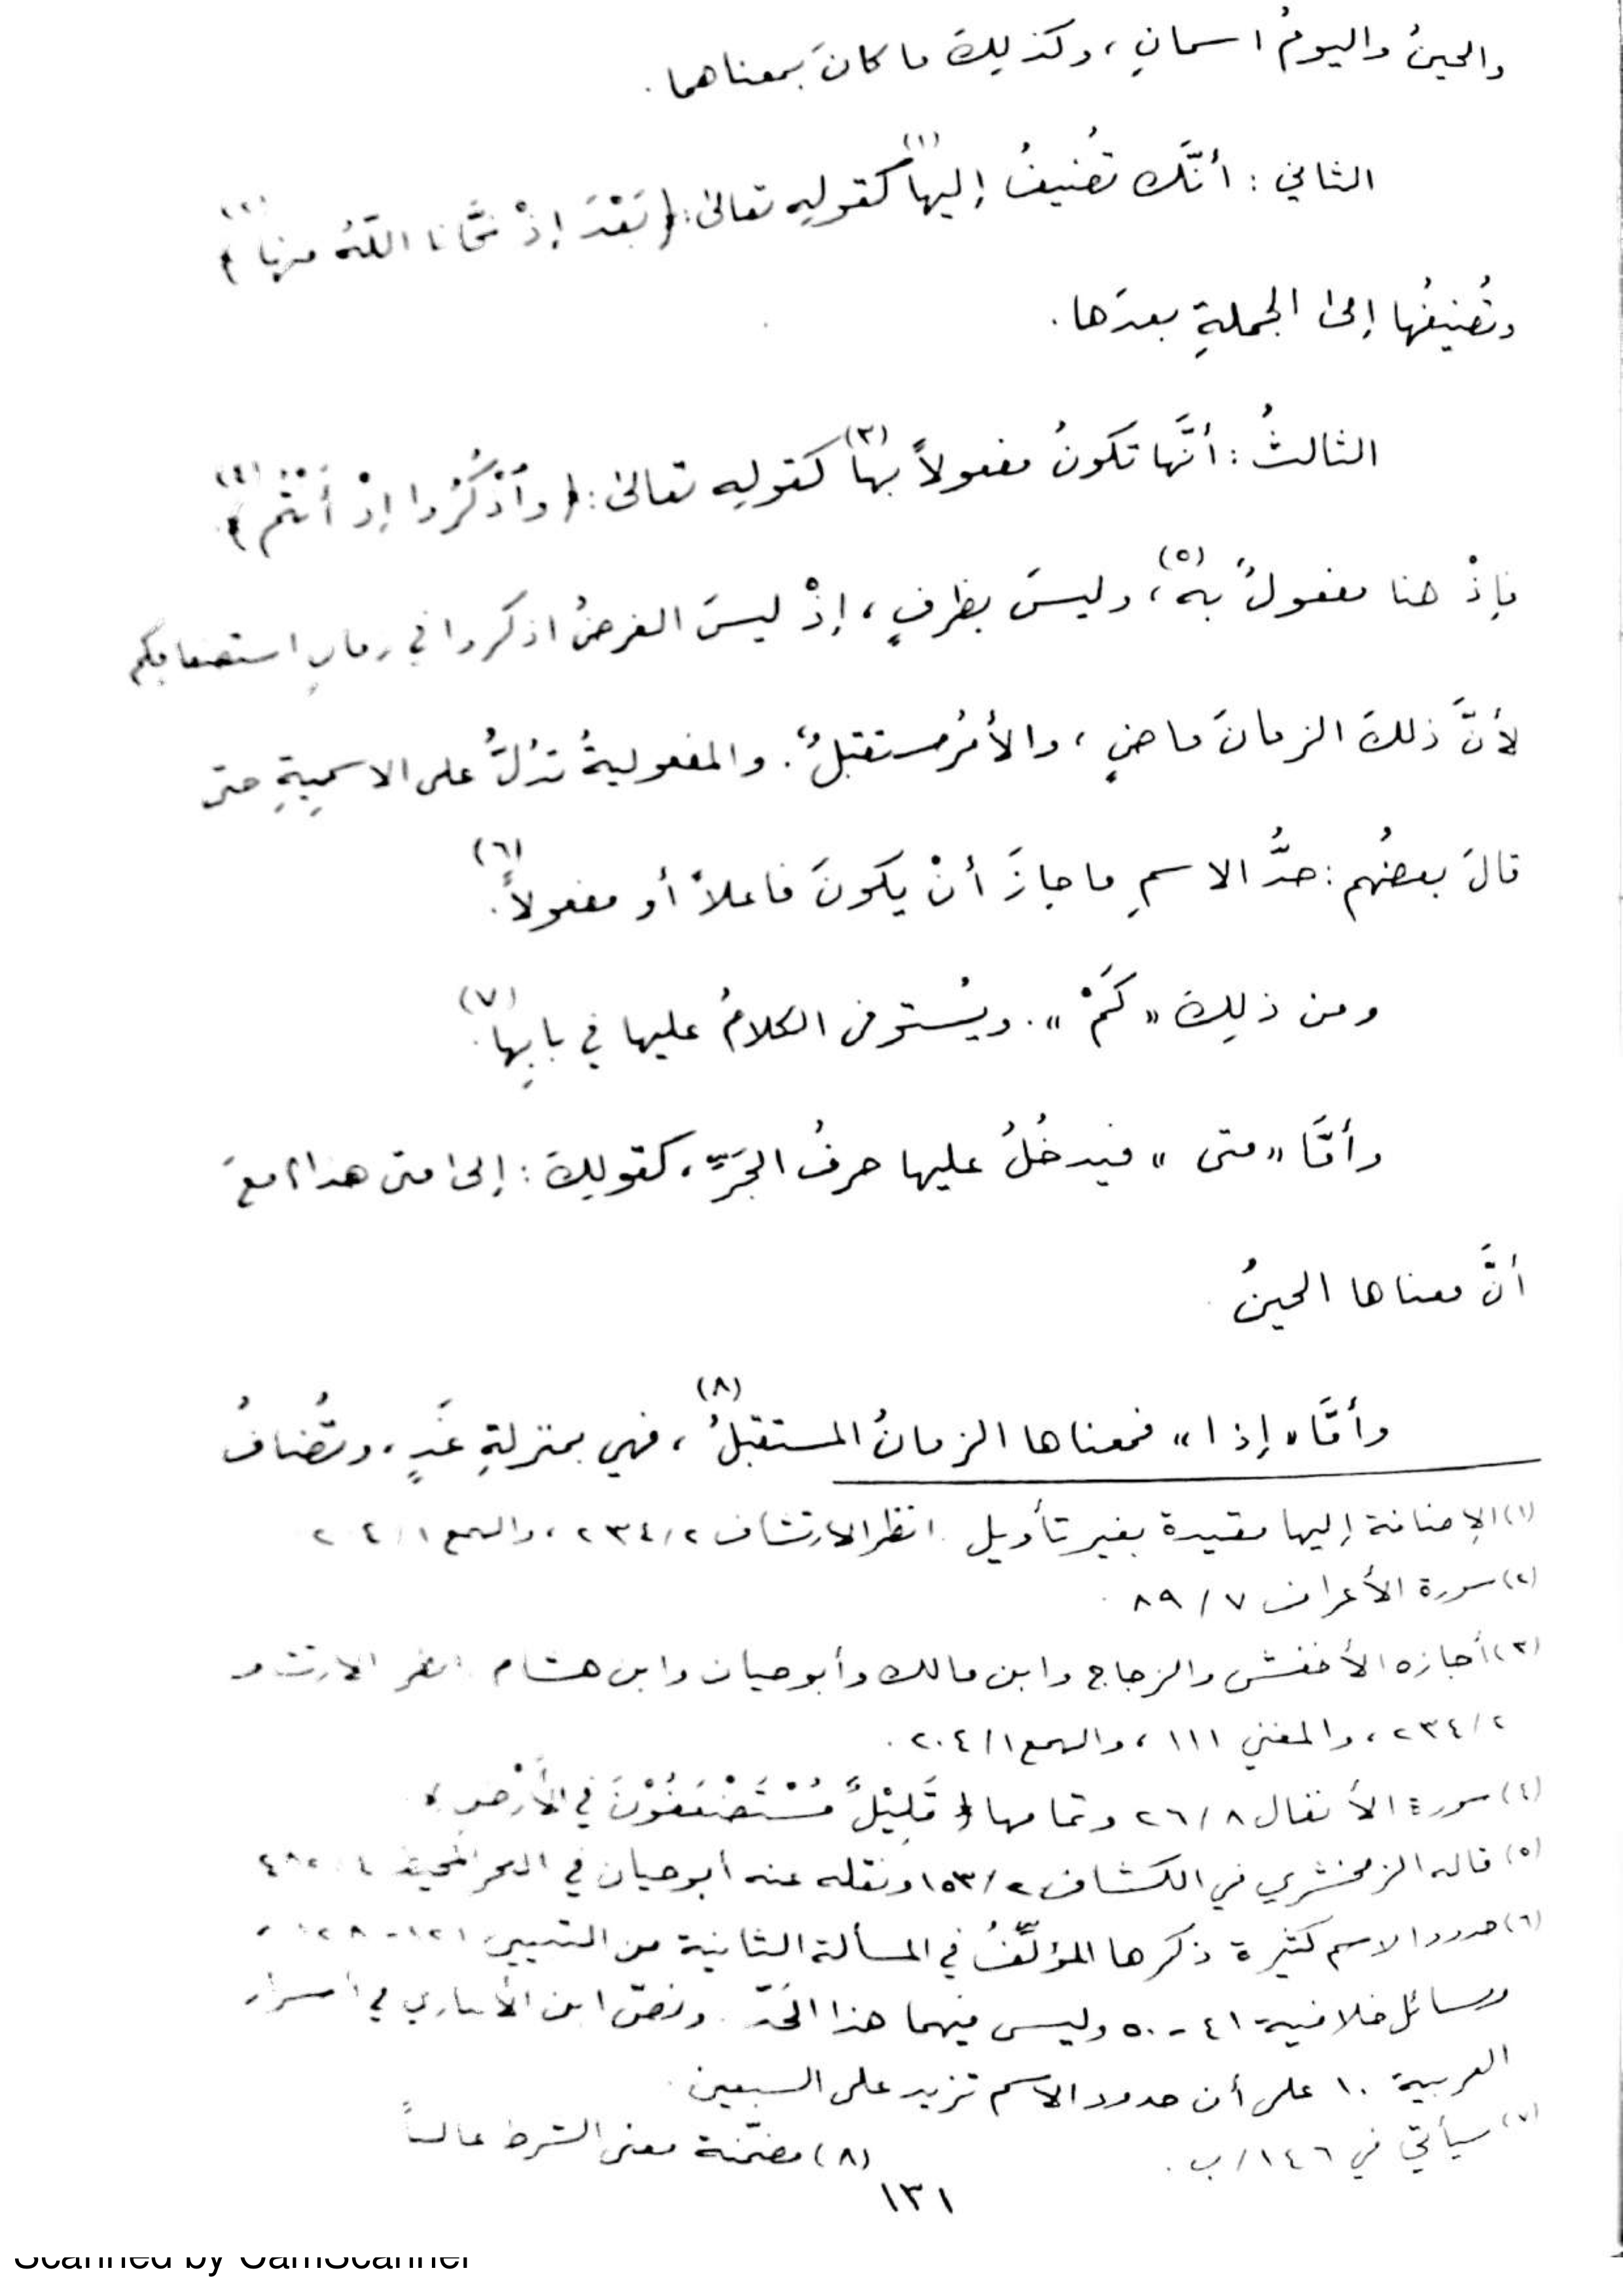 والحينُ واليومُ اسمانِ، وكذلِكَ ما كانَ بمعناهما.
الثاني: أنَّك تُضيفُ إليها(١) كقولِه تعالى: ﴿بَعْدَ إِذْ نَجَّانا اللّهُ منها﴾(٢)
وتُضيفُها إلى الجملةِ بعدَها.
الثالثُ: أنَّها تكونُ مفعولاً بها(٣) كقولِه تعالى: ﴿واَذْكُرُوا إِذْ أَنْتُم﴾(٤)
فإذْ هنا مفعولٌ به(٥)، وليسَ بظرفٍ، إذْ ليسَ الغرضُ اذكروا في زمانِ استضعافِكم
لأنَّ ذلكَ الزمانَ ماضٍ، والأمرُ مستقبلٌ. والمفعوليةُ تدُلُّ على الاسمِيةِ حتى
قالَ بعضُهم: حدُّ الاسمِ ما جازَ أنْ يكونَ فاعلاً أو مفعولاً(٦).
ومن ذلِكَ «كَمْ». ويُستوفى الكلامُ عليها في بابِها(٧).
وأمَّا «متى» فيدخُلُ عليها حرفُ الجَرِّ، كقولِكَ: إلى متى هذا؟ معَ
أنَّ معناها الحينُ
وأمَّا «إذا» فمعناها الزمانُ المستقبلُ(٨)، فهي بمنزلةِ غَدٍ، وتُضافُ
(١) الإضافة إليها مقيدة بغير تأويل. انظر الارتشاف ٢/٢٣٤، والهمع ١/
(٢) سورة الأعراف ٧/٨٩.
(٣) أجازه الأخفش والزجاج وابن مالك وأبو حيان وابن هشام. انظر الارتشاف
٢/٢٣٤، والمغني ١١١، والهمع ١/٢٠٤.
(٤) سورة الأنفال ٨/٢٦ وتمامها ﴿قَلِيْلٌ مُسْتَضْعَفُوْنَ في الأَرْضِ﴾
(٥) قاله الزمخشري في الكشاف ٢/١٥٣ ونقله عنه أبو حيان في البحر المحيط ٤/
(٦) حدود الاسم كثيرة ذكرها المؤلّفُ في المسألة الثانية من التبيين ١٢١-
ومسائل خلافية ٤١-٥٠ وليس فيهما هذا الحَدّ. ونصّ ابن الأنباري في أسرار
العربية ١٠ على أن حدود الاسم تزيد على السبعين.
(٧) سيأتي في ١٤٦/ب.
(٨) مضمّنة معنى الشرط غالباً
١٣١
Scanned by CamScanner